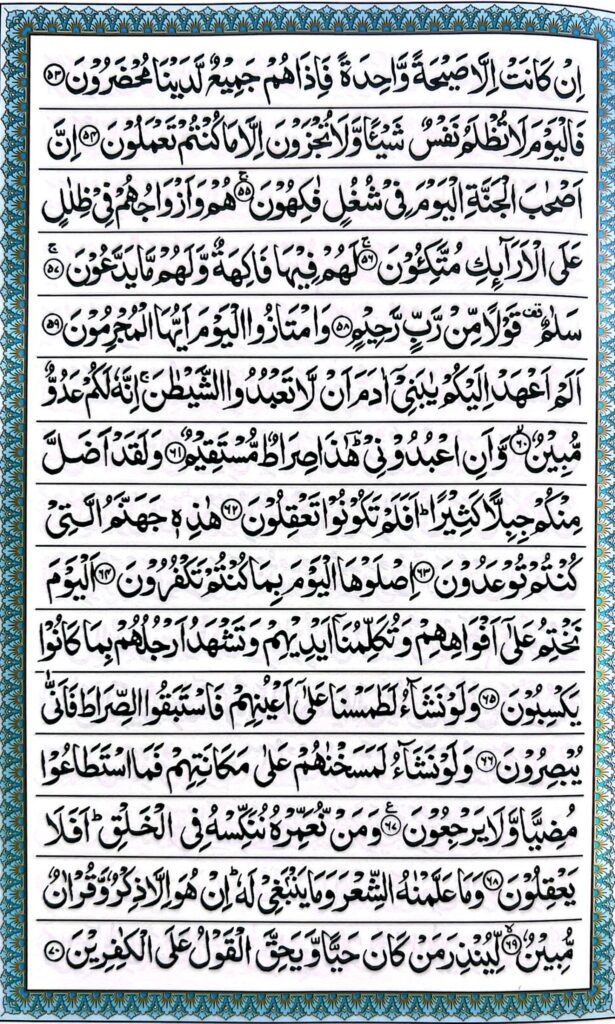 اِنْ كَانَتْ اِلَّا صَيْحَةً وَّاحِدَةً فَاِذَا هُمْ جَمِيْعٌ لَّدَيْنَا مُحْضَرُوْنَ ﴿۵۳﴾
فَالْيَوْمَ لَا تُظْلَمُ نَفْسٌ شَيْـًٔا وَّلَا تُجْزَوْنَ اِلَّا مَا كُنْتُمْ تَعْمَلُوْنَ ﴿۵۴﴾ اِنَّ
اَصْحٰبَ الْجَنَّةِ الْيَوْمَ فِيْ شُغُلٍ فٰكِهُوْنَ ۚ﴿۵۵﴾ هُمْ وَاَزْوَاجُهُمْ فِيْ ظِلٰلٍ
عَلَى الْاَرَآئِكِ مُتَّكِـُٔوْنَ ۚ﴿۵۶﴾ لَهُمْ فِيْهَا فَاكِهَةٌ وَّلَهُمْ مَّا يَدَّعُوْنَ ۚ﴿۵۷﴾
سَلٰمٌ ۟ قَوْلًا مِّنْ رَّبٍّ رَّحِيْمٍ ﴿۵۸﴾ وَامْتَازُوا الْيَوْمَ اَيُّهَا الْمُجْرِمُوْنَ ﴿۵۹﴾
اَلَمْ اَعْهَدْ اِلَيْكُمْ يٰبَنِيْٓ اٰدَمَ اَنْ لَّا تَعْبُدُوا الشَّيْطٰنَ ۚ اِنَّهٗ لَكُمْ عَدُوٌّ
مُّبِيْنٌ ۙ﴿۶۰﴾ وَّاَنِ اعْبُدُوْنِيْ ؕ هٰذَا صِرَاطٌ مُّسْتَقِيْمٌ ﴿۶۱﴾ وَلَقَدْ اَضَلَّ
مِنْكُمْ جِبِلًّا كَثِيْرًا ؕ اَفَلَمْ تَكُوْنُوْا تَعْقِلُوْنَ ﴿۶۲﴾ هٰذِهٖ جَهَنَّمُ الَّتِيْ
كُنْتُمْ تُوْعَدُوْنَ ﴿۶۳﴾ اِصْلَوْهَا الْيَوْمَ بِمَا كُنْتُمْ تَكْفُرُوْنَ ﴿۶۴﴾ اَلْيَوْمَ
نَخْتِمُ عَلٰٓى اَفْوَاهِهِمْ وَتُكَلِّمُنَآ اَيْدِيْهِمْ وَتَشْهَدُ اَرْجُلُهُمْ بِمَا كَانُوْا
يَكْسِبُوْنَ ﴿۶۵﴾ وَلَوْ نَشَآءُ لَطَمَسْنَا عَلٰٓى اَعْيُنِهِمْ فَاسْتَبَقُوا الصِّرَاطَ فَاَنّٰى
يُبْصِرُوْنَ ﴿۶۶﴾ وَلَوْ نَشَآءُ لَمَسَخْنٰهُمْ عَلٰى مَكَانَتِهِمْ فَمَا اسْتَطَاعُوْا
مُضِيًّا وَّلَا يَرْجِعُوْنَ ﴿۶۷﴾ ع وَمَنْ نُّعَمِّرْهُ نُنَكِّسْهُ فِي الْخَلْقِ ؕ اَفَلَا
يَعْقِلُوْنَ ﴿۶۸﴾ وَمَا عَلَّمْنٰهُ الشِّعْرَ وَمَا يَنْۢبَغِيْ لَهٗ ؕ اِنْ هُوَ اِلَّا ذِكْرٌ وَّقُرْاٰنٌ
مُّبِيْنٌ ۙ﴿۶۹﴾ لِّيُنْذِرَ مَنْ كَانَ حَيًّا وَّيَحِقَّ الْقَوْلُ عَلَى الْكٰفِرِيْنَ ﴿۷۰﴾